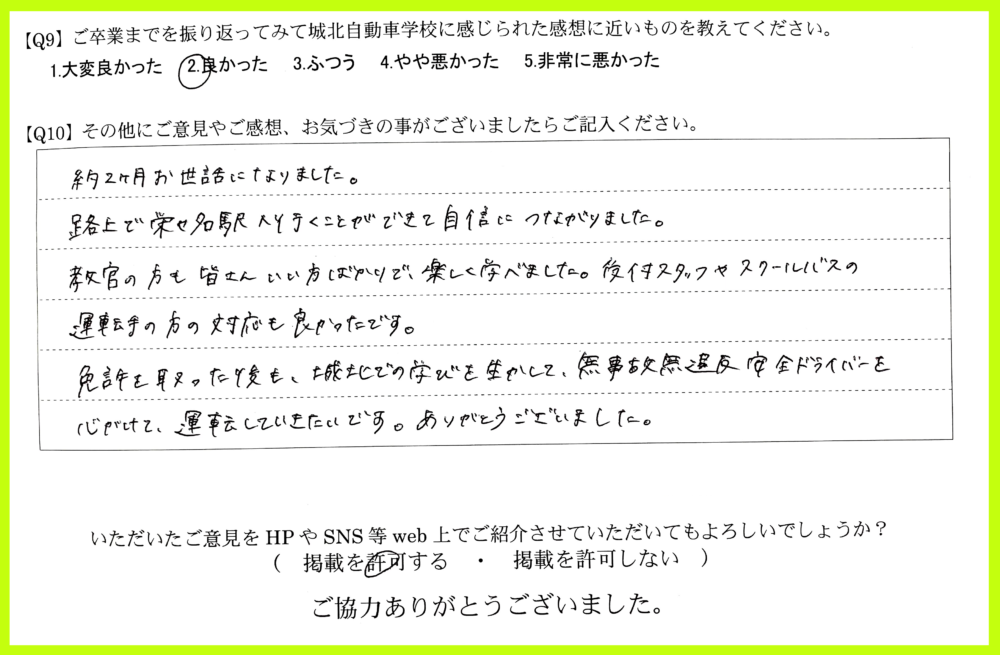 【Q9】ご卒業までを振り返ってみて城北自動車学校に感じられた感想に近いものを教えてください。
1.大変良かった 2.良かった 3.ふつう 4.やや悪かった 5.非常に悪かった
【Q10】その他にご意見やご感想、お気づきの事がございましたらご記入ください。
約2ヶ月お世話になりました。
路上で栄や名駅へ行くことができて自信につながりました。
教官の方も皆さんいい方ばかりで、楽しく学べました。受付スタッフやスクールバスの
運転手の方の対応も良かったです。
免許を取った後も、城北での学びを生かして、無事故無違反安全ドライバーを
心がけて、運転していきたいです。ありがとうございました。
いただいたご意見をHPやSNS等web上でご紹介させていただいてもよろしいでしょうか？
（ 掲載を許可する ・ 掲載を許可しない ）
ご協力ありがとうございました。